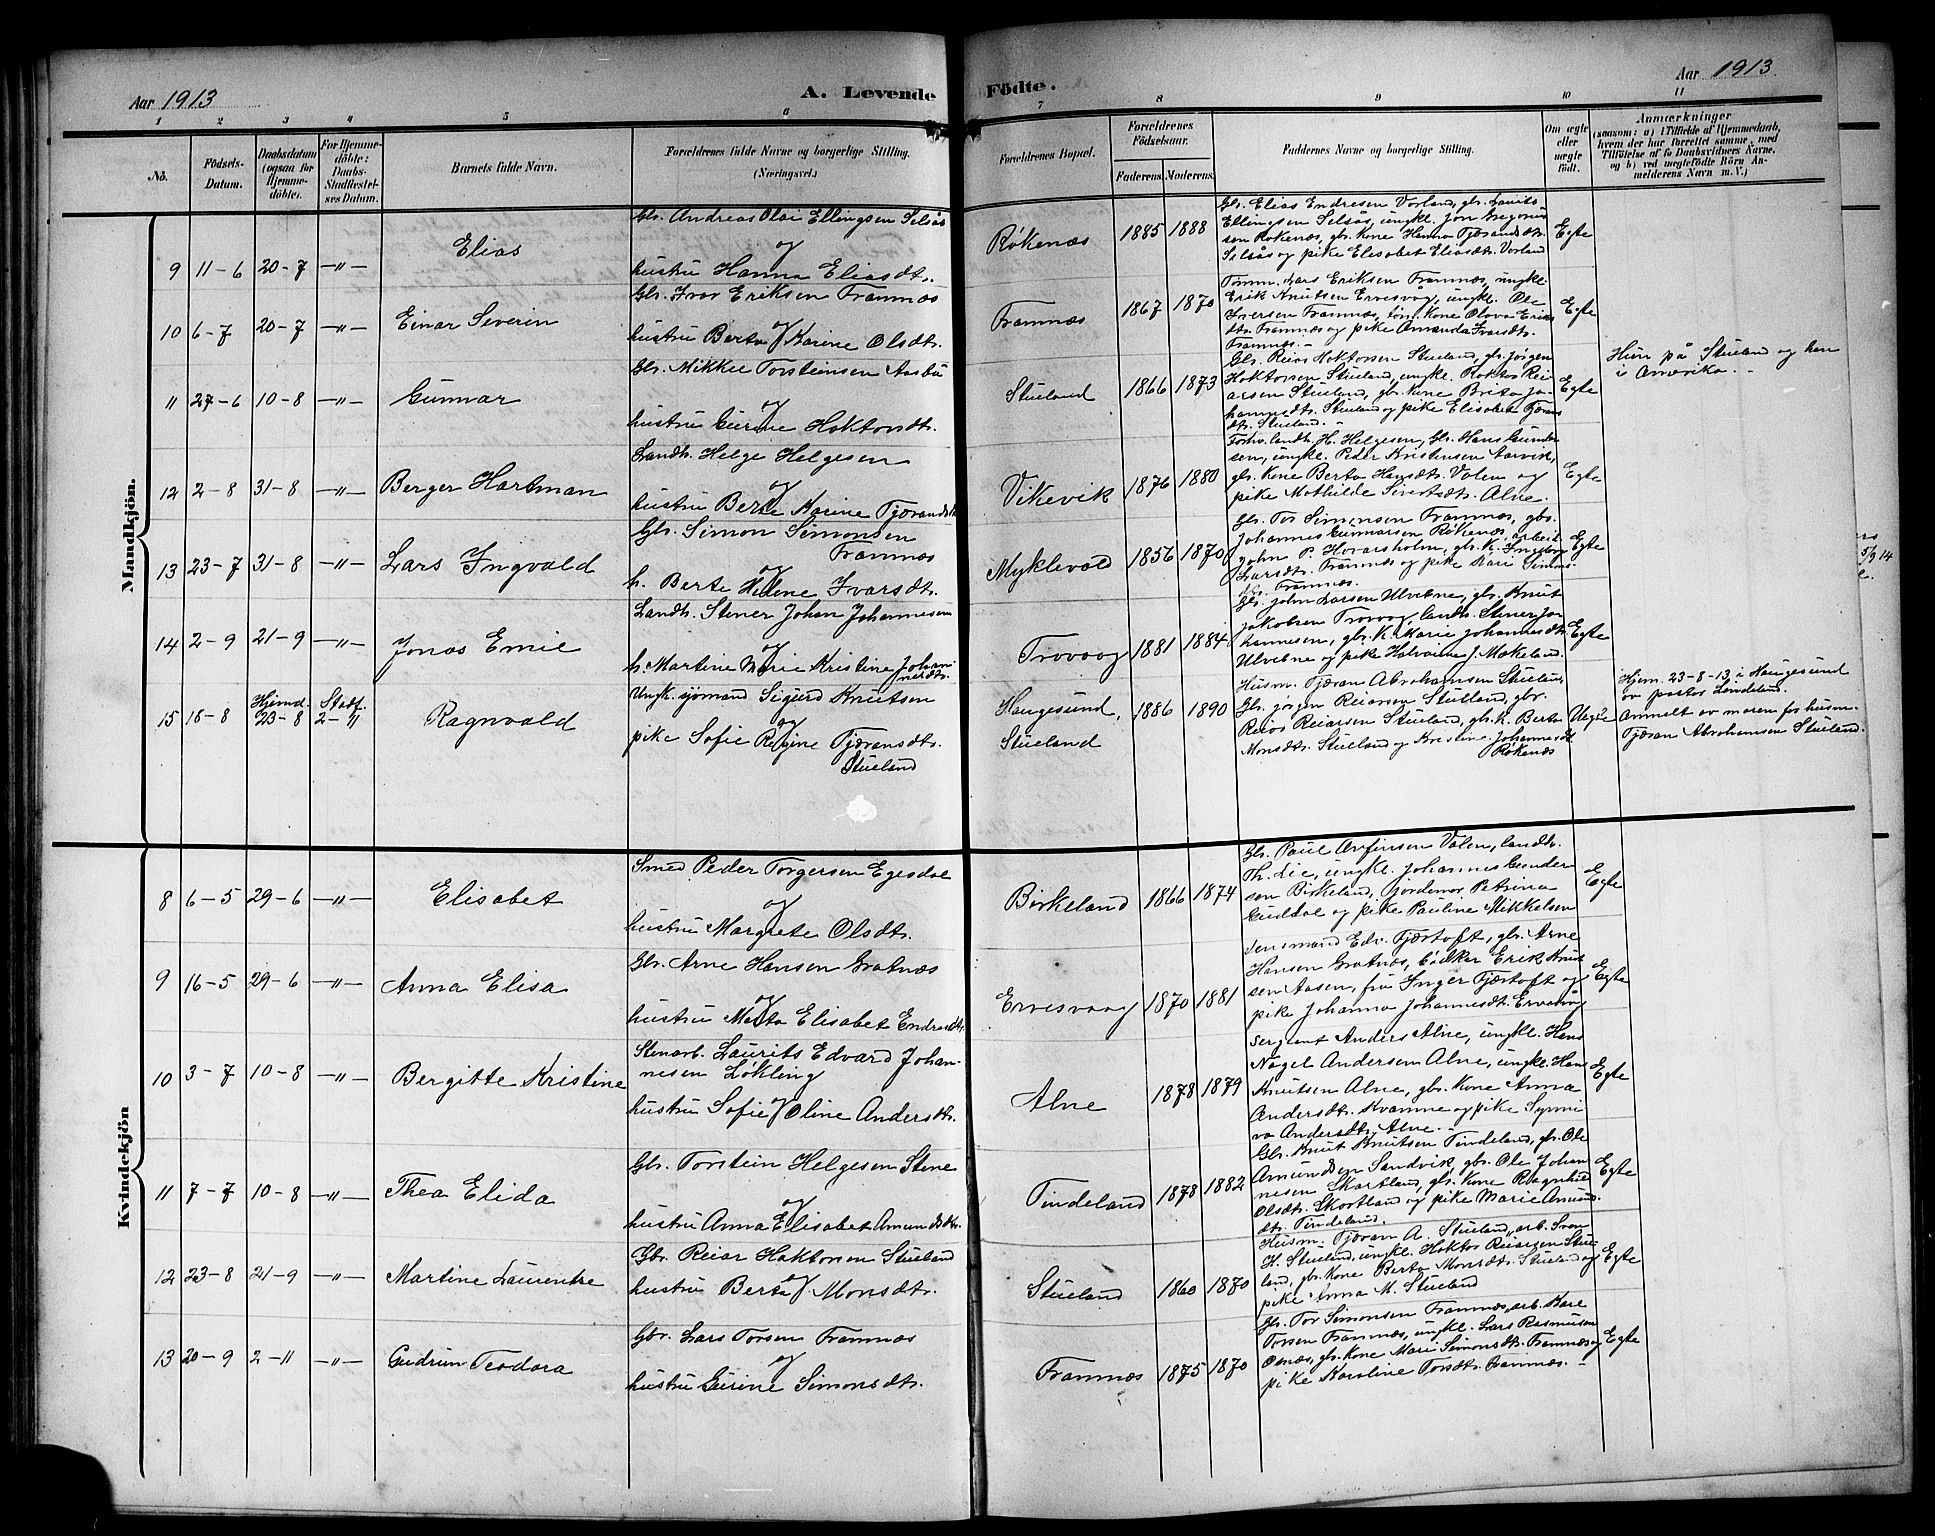 Aar 1913
A. Levende Födte.
Aar 1913.
1 2 3 4 5 6 7 8 9 10 11
No.
Födsels-Datum.
Daabsdatum (ogsaa for Hjemme-döbte).
For Hjemme-döbte: Daabs-Stadfæstel-ses Datum.
Barnets fulde Navn.
Forældrenes fulde Navne og borgerlige Stilling.
(Næringsvei.)
Forældrenes Bopæl.
Forældrenes Födselsaar.
Faderens. Moderens.
Faddernes Navne og borgerlige Stilling.
Om ægte eller uægte födt.
Anmærkninger
(saasom: a) i Tilfælde af Hjemmedaab, hvem der har forrettet samme, med Tilföielse af to Daabsvidners Navne. og b) ved uægtefödte Börn An-melderens Navn m. V.)
Mandkjön.
9 11-6 20-7 -"- Elias
Gbr. Andreas Olai Ellingsen Selsås
og
hustru Hanna Eliasdt.
Røkenæs 1885 1888
Gbr. Elias Endresen Vorland, gbr. Laurits
Ellingsen Selsås, ungkl. Jon Gregorius
sen Røkenæs, gbr. Kone Hanna Tjærandsdt.
Selsås og pike Elisabet Eliasdt. Vorland
Egte
10 6-7 20-7 -"- Einar Severin
Gbr. Ivar Eriksen Framnæs
og
hustru Berta Karine Olsdt.
Framnæs 1867 1870
Tømm. Lars Eriksen Framnæs, ungkl.
Erik Knutsen Ervesvåg, ungkl. Ole
Iversen Framnæs, tøm. Kone Olava Eriks
dt. Framnæs og pike Amanda Ivarsdt.
Framnæs.-
Egte
11 27-6 10-8 -"- Gunnar
Gbr. Mikkel Torsteinsen Aasbu
og
hustru Gurine Haktorsdt.
Stueland 1866 1873
Gbr. Reiar Haktorsen Stueland, gbr. Jørgen
Haktorsen Stueland, ungkl. Haktor Rei
arsen Stueland, gbr. Kone Brita Jo
hannesdt. Stueland og pike Elisabet Tjærans
dt. Stueland.-
Egte
Hun på Stueland og han
i Amerika.-
12 2-8 31-8 -"- Berger Hartman
Landh. Helge Helgesen
og
hustru Berta Karine Tjærandsdt.
Vikevik 1876 1880
Forhv. landh. H. Helgesen, Gbr. Hans Gunder
sen, ungkl. Peder Kristensen Aarvik,
gbr. Kone Berta Hansdt. Valen og
pike Mathilde Sivertsdt. Alne.
Egte
13 23-7 31-8 -"- Lars Ingvald
Gbr. Simon Simonsen
Framnæs
og
h. Berte Helene Ivarsdt.
Myklevold 1856 1870
Gbr. Tor Simonsen Framnæs, gbr.
Johannes Gunnarsen Røkenæs, arbeid.
John P. Hovarsholm, gbr. K. Ingeborg
Larsdt. Framnæs og pike Kari Simons
dt. Framnæs.
Egte
14 2-9 21-9 -"- Jonas Emil
Landh. Stener Johan Johannesen
og
h. Martine Marie Kristine Johan
nesdt.
Trovaag 1881 1884
Gbr. John Larsen Ulvebne, gbr. Knut
Jakobsen Trovaag, landh. Stener Jo
hannesen, gbr. K. Marie Johannesdt.
Ulvebne og pike J. Mækeland.
Egte
15 18-8 Hjemd. 23-8 Stadf. 2-" Ragnvald
Ungk. sjømand Sigurd Knutsen
og
pike Sofie Regine Tjæransdt.
Stueland
Haugesund,
Stueland
1886 1890
Husm. Tjæran Abrahamsen Stueland
Gbr. Jørgen Reiarsen Stueland, gbr.
Reiar Reiarsen Stueland, gbr. k. Berta
Monsdt. Stueland og Kristine Johannesdt
Røkenæs
Uegte
Hjem. 23-8-13, i Haugesund
av pastor Lindeland.
Anmelt av moren for husm.
Tjæran Abrahamsen Stueland.
5/9 14
Kvindekjön
8 6-5 29-6 -"- Elisabet
Smed Peder Torgersen Egesdal
og
hustru Margrete Olsdt.
Birkeland 1866 1874
Gbr. Paul Arfinsen Valen, landh.
Th. Lie, ungkl. Johannes Gunder
sen Birkeland, jordemor Petrina
Guddal og pike Pauline Mikkelsen
Egte
9 16-5 29-6 -"- Anna Elisa
Gbr. Arne Hansen Gratnæs
og
hustru Marta Elisabet Endresdt.
Ervesvaag 1870 1881
Lensmand Edv. Tjærtoft, gbr. Arne
Hansen Gratnæs, bødker Erik Knut
sen Aasen, fru Inger Tjærtoft og
pike Johanna Johannesdt. Ervasvåg
Egte
10 3-7 10-8 -"- Bergitte Kristine
Stenarb. Laurits Edvard Johan-
nesen Løkling
og
hustru Sofie Oline Andersdt.
Alne 1878 1879
Sergeant Anders Alne, ungkl. Hans
Nagel Andersen Alne, ungkl. Hans
Knutsen Alne, gbr. Kone Anna
Andersdt. Kvamme og pike Synni
va Andersdt. Alne.-
Egte
11 7-7 10-8 -"- Thea Elida
Gbr. Torstein Helgesen Stene
og
hustru Anna Elisabet Amundsdt.
Tindeland 1878 1882
Gbr. Knut Knutsen Tindeland, gbr. Ole
Amundsen Sandvik, gbr. Ole Johan
nesen Skartland, gbr. Kone Ragnhild
Olsdt. Skartland og pike Marie Amund
dt. Tindeland.
Egte
12 23-8 21-9 -"- Martine Laurentse
Gbr. Reiar Haktorsen Stueland
og
hustru Berta Monsdt.
Stueland 1860 1870
Husm. Tjæran A. Stueland, arb. Sven
H. Stueland, ungkl. Haktor Reiarsen Stue
land, gbr. Kone Berta Monsdt. Stueland og
pike Anna M. Stueland
Egte
13 20-9 2-11 -"- Gudrun Teodora
Gbr. Lars Torsen Framnæs
og
hustru Gurine Simonsdt.
Framnæs 1875 1870
Gbr. Tor Simonsen Framnæs, arb. Kare
Torsen Framnæs, ungkl. Lars Rasmusen
Osnæs, gbr. Kone Mari Simonsdt. Framnæs og
pike Karoline Torsdt. Framnæs.-
Egte